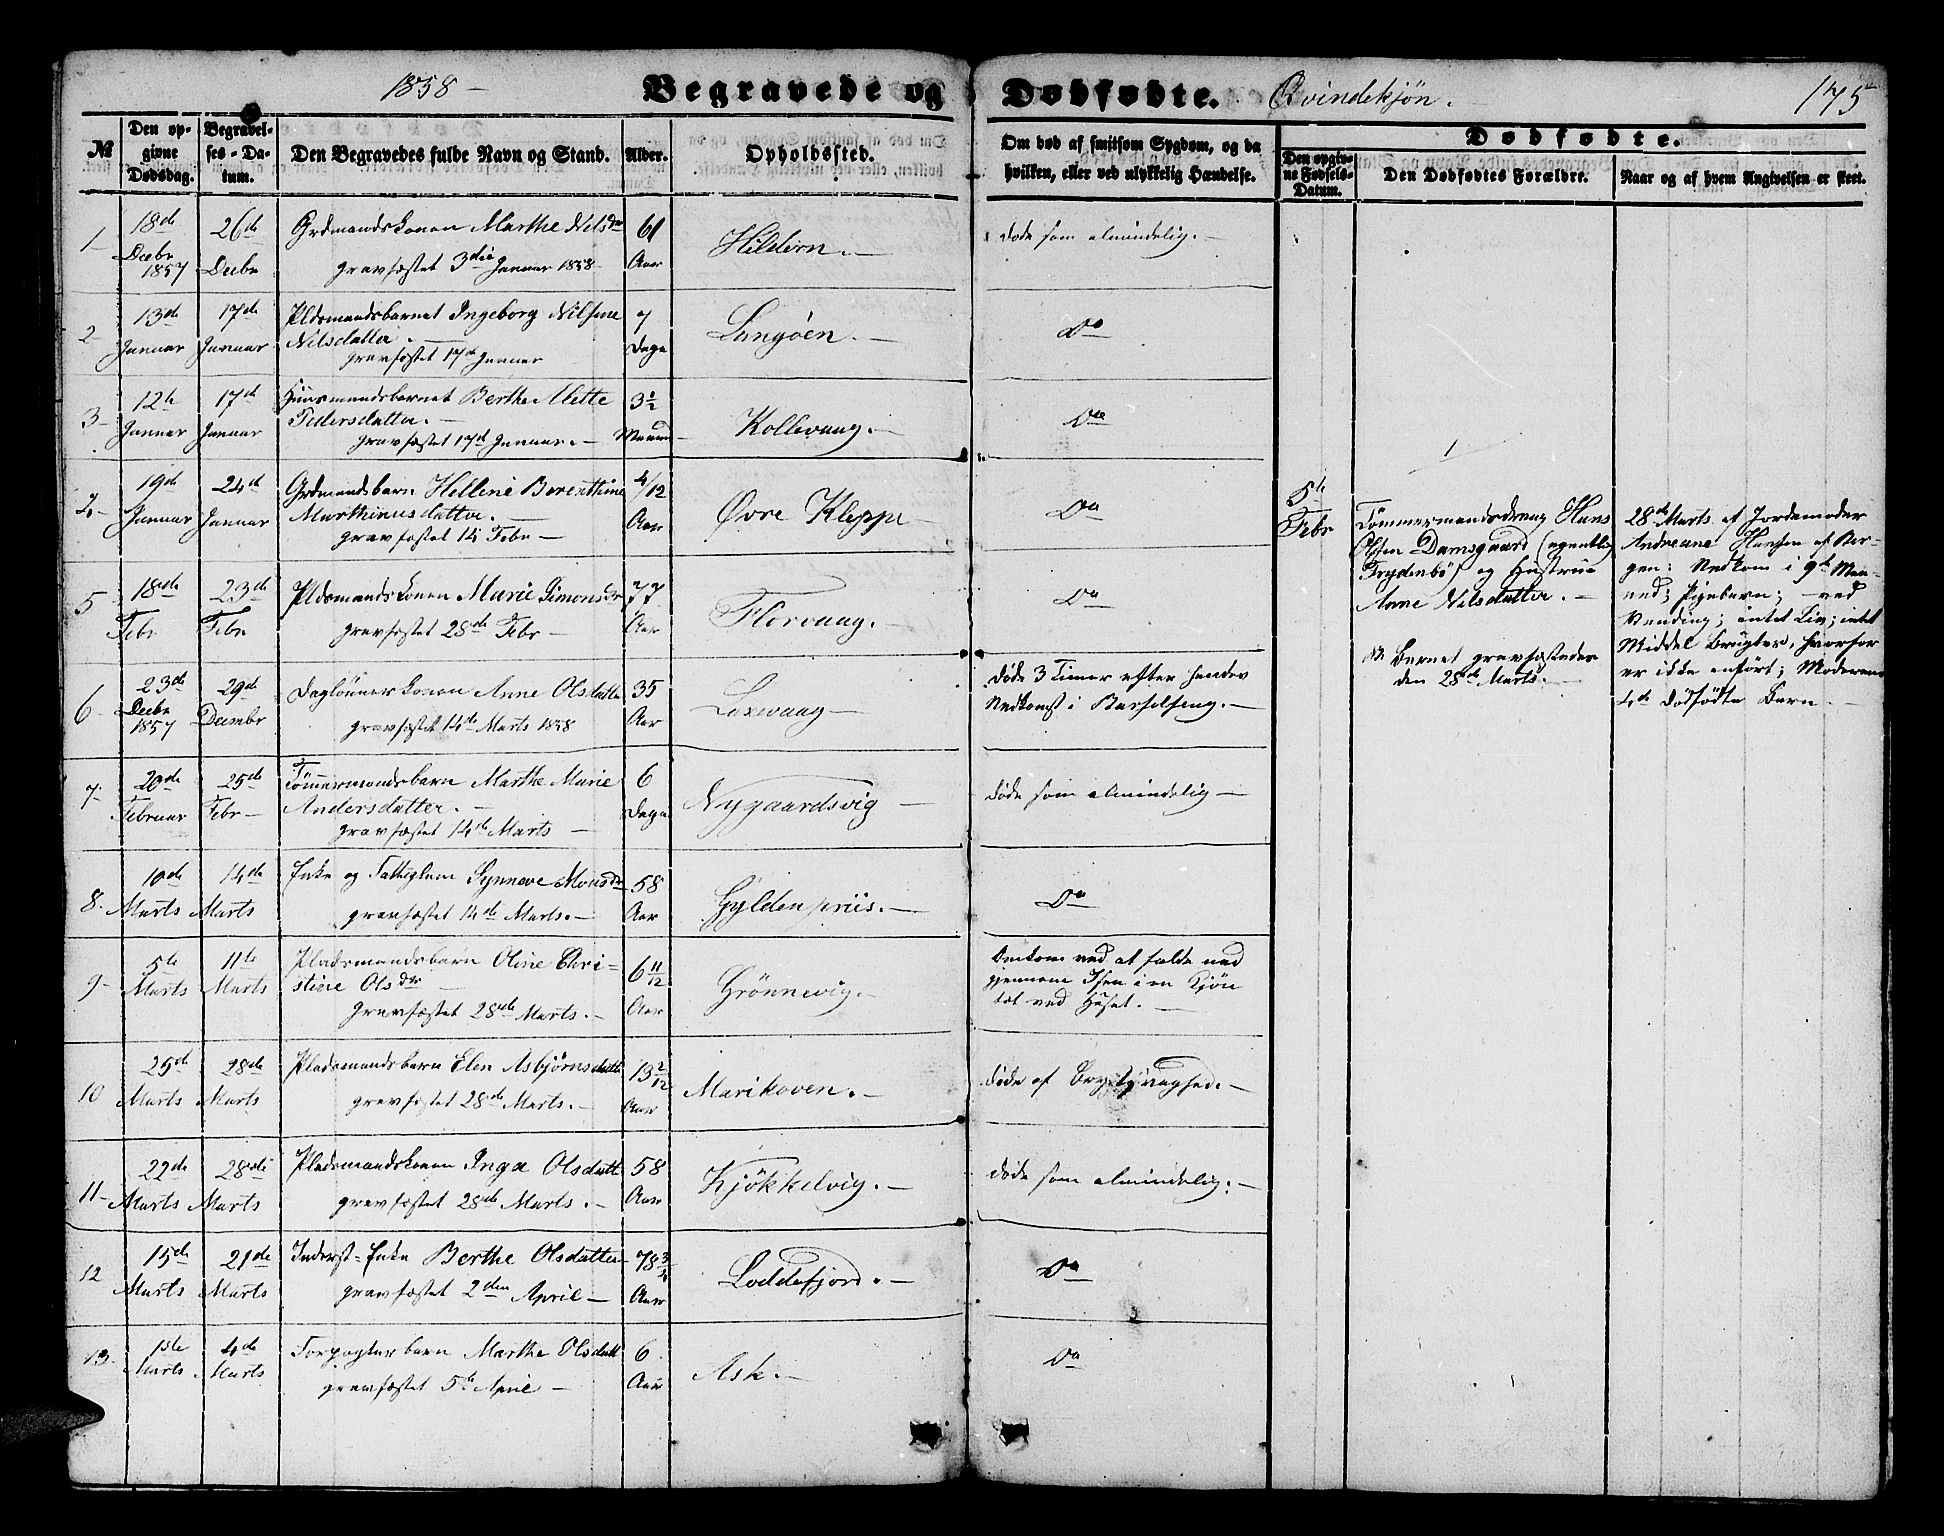 1858 -
Begravede og Dødfødte. Qvindekjøn.
175
№
Den opgivne Dødsdag.
Begravelses-Datum.
Den Begravedes fulde Navn og Stand.
Alder.
Opholdssted.
Om død af smitsom Sygdom, og da
hvilken, eller ved ulykkelig Hændelse.
Dødfødte.
Den opgivne Fødsels-Datum.
Den Dødfødtes Forældre.
Naar og af hvem Angivelsen er skeet.
1- 18de Decbr 1857 26de Decbr Grdmandskonen Marthe Nilsdr 61 Aar Hildern. - døde som almindelig. -
gravfæstet 3die Januar 1858
2- 13de Januar 17de Januar Pldsmandsbarnet Ingeborg Nilsine 7 Dage Langöen. - Do
Nilsdatter. -
gravfæstet 17de Januar
3- 12te Januar 17de Januar Huusmandsbarnet Berthe Mette 3½ Maaned Kollevaag. - Do
Pedersdatter. -
gravfæstet 17de Januar. -
4- 19de Januar 24de Januar Grdmandsbarn Hellene Berenthine 4/12 Aar Øvre Kleppe - Do
Marthinusdatter. -
gravfæstet 14 Febr -
5 18de Febr 23de Febr Pldsmandskonen Marie Simonsdr 77 Aar Florvaag. - Do
gravfæstet 28de Febr -
6- 23de Decbr 1857 29de Decembr Daglönnerkonen Anne Olsdatter 35 Aar Laxevaag - døde 3 Timer efter hendes
gravfæstet 14de Marts 1858 Nedkomst i Barselseng. -
7- 20de Februar 25de Febr - Tömmermandsbarn Marthe Marie 6 Dage Nygaardsvig - døde som almindelig -
Andersdatter. -
gravfæstet 14de Marts -
8- 10de Marts 14de Marts Enke og Fattiglem Synneve Monsdr 58 Aar Gyldenpriis. - Do
gravfæstet 14de Marts. -
9- 5te Marts 11te Marts Pladsmandsbarn Oline Chri- 6 11/12 Aar Grönnevig. - Omkom ved at falde ned
stine Olsdr - gjennem Isen i en Kjön
gravfæstet 28de Marts. - tæt ved Huset. -
10 25de Marts 28de Marts Pladsmandsbarn Elen Asbjörnsdatter 13 2/12 Aar Marikoven. - døde af Brystsvaghed. -
gravfæstet 28de Marts. -
11- 22de Marts 28de Marts Pladsmandskonen Inga Olsdatt 58 Aar Kjökkelvig. - døde som almindelig. -
gravfæstet 28de Marts. -
12 15de Marts 21de Marts Inderst-Enke Berthe Olsdatter 78¾ Aar Loddefjord. - Do
gravfæstet 2den April -
13- 1ste Marts 4de Marts Forpagterbarn Marthe Olsdatt 6 Aar Ask. - Do
gravfæstet 5te April -
1
5te Febr
Tömmermandsdreng Hans
Olsen Damsgaard (egentlig
Frydenbö) og Hustrue
Anne Nilsdatter. -
Barnet gravfæstedes
den 28de Marts. -
28de Marts af Jordemoder
Andreane Hansen af Ber-
gen: Nedkom i 9de Maa-
ned; Pigebarn; - ved
Vending; intet Liv; intet
Middel brugtes, hvorfor
er ikke anfört; Moderens
4de dödfödte Barn. -